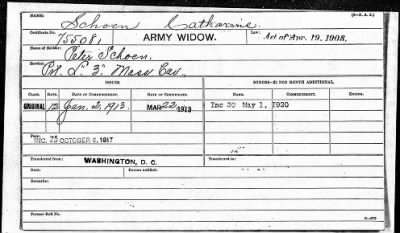 NAME:
Schoen Catharine.
Certificate No.
755081,
ARMY WIDOW.
Law:
Act of Apr. 19, 1908.
Name of Soldier:
Peter Schoen.
Service:
Pvt. "L" 3" Mass Cav.
ISSUE
MINORS—$2 PER MONTH ADDITIONAL
CLASS. RATE. DATE OF COMMENCEMENT. DATE OF CERTIFICATE. NAME. COMMENCEMENT. ENDING.
ORIGINAL 12 Jan. 2, 1913. MAR 22 1913 Inc 30 May 1, 1920
INC. 25 OCTOBER 6, 1917
Transferred from: WASHINGTON, D. C. Transferred to:
Died: Bureau notified:
Remarks:
Former Roll No.